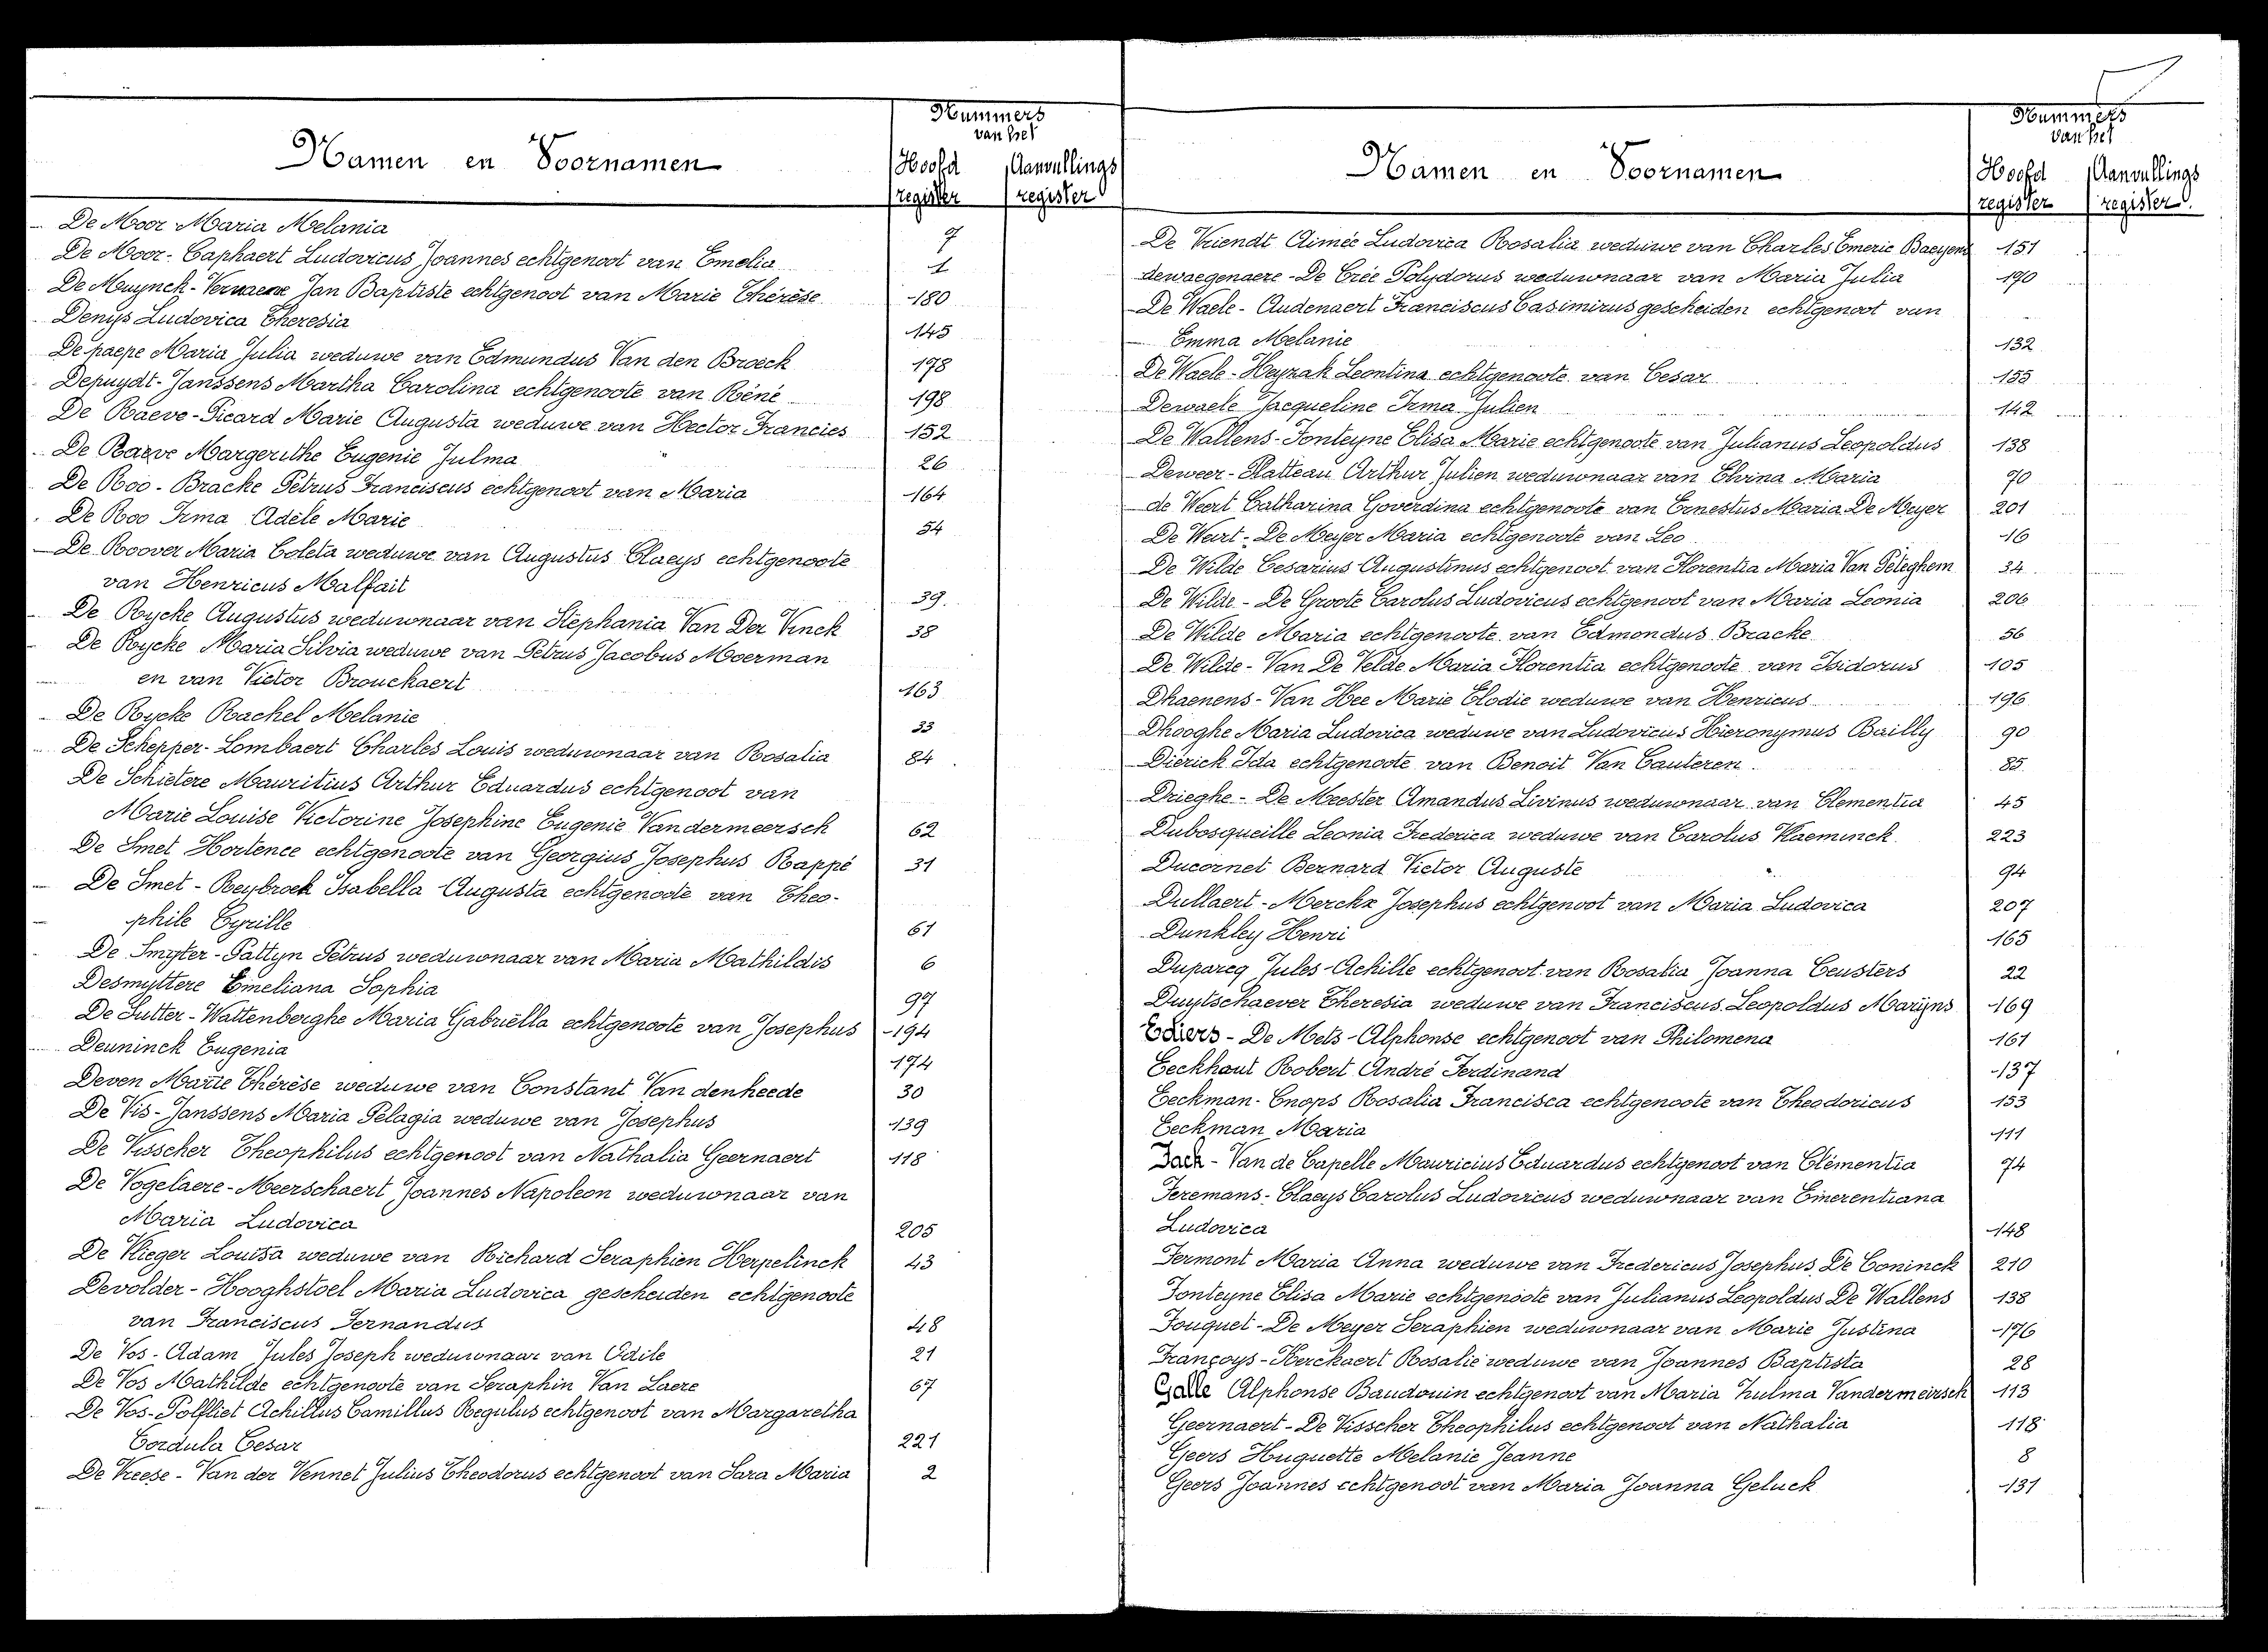 Nummers
van het
Namen en Voornamen
Hoofd Aanvullings
register register
De Moor Maria Melania 7
De Moor - Caphaert Ludovicus Joannes echtgenoot van Emelia 1
De Muynck - Vernaeve Jan Baptiste echtgenoot van Marie Thérèse 180
Denys Ludovica Theresia 145
De paepe Maria Julia weduwe van Edmundus Van den Broeck 178
Depuydt - Janssens Martha Carolina echtgenoote van Réné 198
De Raeve - Picard Marie Augusta weduwe van Hector Francies 152
De Raeve Margerithe Eugenie Julma 26
De Roo - Bracke Petrus Franciscus echtgenoot van Maria 164
De Roo Irma Adèle Marie 54
De Roover Maria Coleta weduwe van Augustus Claeys echtgenoote
van Henricus Malfait 39
De Rycke Augustus weduwnaar van Stephania Van Der Vinck 38
De Rycke Maria Silvia weduwe van Petrus Jacobus Moerman
en van Victor Brouckaert 163
De Rycke Rachel Melanie 33
De Schepper - Lombaert Charles Louis weduwnaar van Rosalia 84
De Schietere Mauritius Arthur Eduardus echtgenoot van
Marie Louise Victorine Josephine Eugenie Vandermeersch 62
De Smet Hortence echtgenoote van Georgius Josephus Rappé 31
De Smet - Reybroek Isabella Augusta echtgenoote van Theo-
phile Cyrille 61
De Smyter - Pattyn Petrus weduwnaar van Maria Mathildis 6
Desmyttere Emeliana Sophia 97
De Sutter - Wattenberghe Maria Gabriëlla echtgenoote van Josephus 194
Deuninck Eugenia 174
Deven Marie Thérèse weduwe van Constant Van denheede 30
De Vis - Janssens Maria Pelagia weduwe van Josephus 139
De Visscher Theophilus echtgenoot van Nathalia Geernaert 118
De Vogelaere - Meerschaert Joannes Napoleon weduwnaar van
Maria Ludovica 205
De Vlieger Louisa weduwe van Richard Seraphien Herpelinck 43
Devolder - Hooghstoel Maria Ludovica gescheiden echtgenoote
van Franciscus Fernandus 48
De Vos - Adam Jules Joseph weduwnaar van Odile 21
De Vos Mathilde echtgenoote van Seraphin Van Laere 67
De Vos - Polfliet Achillus Camillus Regulus echtgenoot van Margaretha
Cordula Cesar 221
De Vreese - Van der Vennet Julius Theodorus echtgenoot van Sara Maria 2
Nummers
van het
Namen en Voornamen
Hoofd Aanvullings
register register
De Vriendt Aimée Ludovica Rosalia weduwe van Charles Emeric Baeyens 151
dewaegenaere - De Crée Polydorus weduwnaar van Maria Julia 190
De Waele - Audenaert Franciscus Casimirus gescheiden echtgenoot van
Emma Melanie 132
De Waele - Heyzak Leontina echtgenoote van Cesar 155
Dewaele Jacqueline Irma Julien 142
De Wallens - Fonteyne Elisa Marie echtgenoote van Julianus Leopoldus 138
Deweer - Platteau Arthur Julien weduwnaar van Elvina Maria 70
de Weert Catharina Goverdina echtgenoote van Ernestus Maria De Meyer 201
De Weirt - De Meyer Maria echtgenoote van Leo 16
De Wilde Cesarius Augustinus echtgenoot van Florentia Maria Van Peteghem 34
De Wilde - De Groote Carolus Ludovicus echtgenoot van Maria Leonia 206
De Wilde Maria echtgenoote van Edmondus Bracke 56
De Wilde - Van De Velde Maria Florentia echtgenoote van Isidorus 105
Dhaenens - Van Hee Marie Elodie weduwe van Henricus 196
Dhooghe Maria Ludovica weduwe van Ludovicus Hieronymus Bailly 90
Dierick Ida echtgenoote van Benoit Van Cauteren 85
Drieghe - De Meester Amandus Livinus weduwnaar van Clementia 45
Dubosqueille Leonia Frederica weduwe van Carolus Vlaeminck 223
Ducornet Bernard Victor Auguste 94
Dullaert - Merckx Josephus echtgenoot van Maria Ludovica 207
Dunkley Henri 165
Dupareq Jules Achille echtgenoot van Rosalia Joanna Ceusters 22
Duytschaever Theresia weduwe van Franciscus Leopoldus Marijns 169
Ediers - De Mets Alphonse echtgenoot van Philomena 161
Eeckhaut Robert André Ferdinand 137
Eeckman - Cnops Rosalia Francisca echtgenoote van Theodoricus 153
Eeckman Maria 111
Fack - Van de Capelle Mauricius Eduardus echtgenoot van Clémentia 74
Feremans - Claeys Carolus Ludovicus weduwnaar van Emerentiana
Ludovica 148
Fermont Maria Anna weduwe van Fredericus Josephus De Coninck 210
Fonteyne Elisa Marie echtgenoote van Julianus Leopoldus De Wallens 138
Fouquet - De Meyer Seraphien weduwnaar van Marie Justina 176
Françoys - Herckaert Rosalie weduwe van Joannes Baptista 28
Galle Alphonse Baudouin echtgenoot van Maria Zulma Vandermeirsch 113
Geernaert - De Visscher Theophilus echtgenoot van Nathalia 118
Geers Huguette Melanie Jeanne 8
Geers Joannes echtgenoot van Maria Joanna Geluck 131